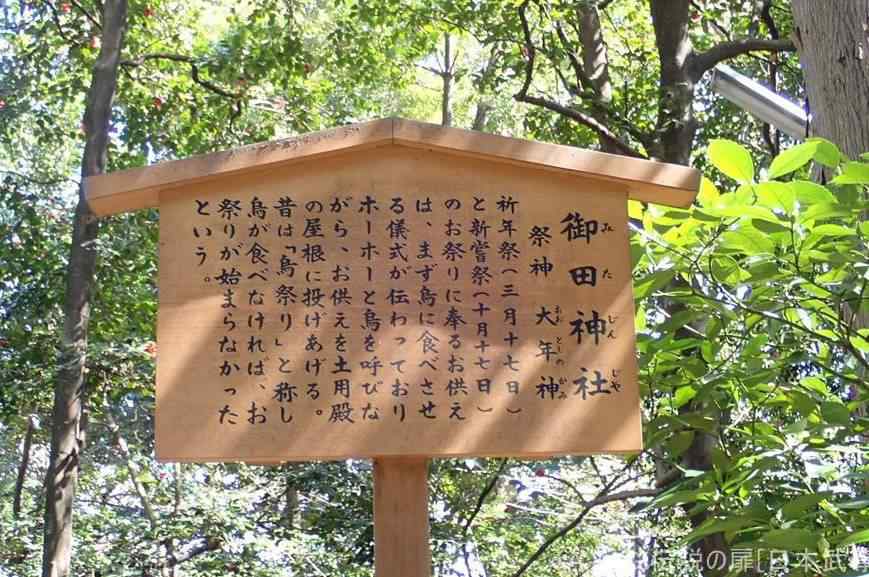 御田神社
みたじんじゃ
祭神 大年神
おおとしのかみ
祈年祭(三月十七日)
と新嘗祭(十月十七日)
のお祭りに奉るお供え
は、まず烏に食べさせ
る儀式が伝わっており
ホーホーと烏を呼びな
がら、お供えを土用殿
の屋根に投げあげる。
昔は「烏祭り」と称し
烏が食べなければ、お
祭りが始まらなかった
という。
伝説の扉[日本武尊